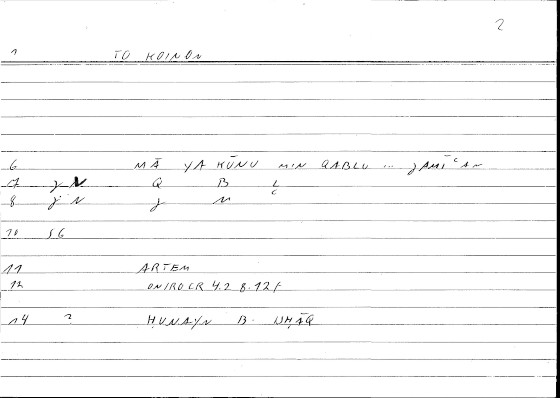 2
1 TO KOINON
6 MĀ YAKŪNU MIN QABLU ... ǧAMĪʿAN
7 ǧ N Q B L
8 ǧ N ǧ M ʿ
10 SG
11 ARTEM
12 ONIROCR 4.2 8.12f
14 ? ḤUNAYN B. ISḤĀQ